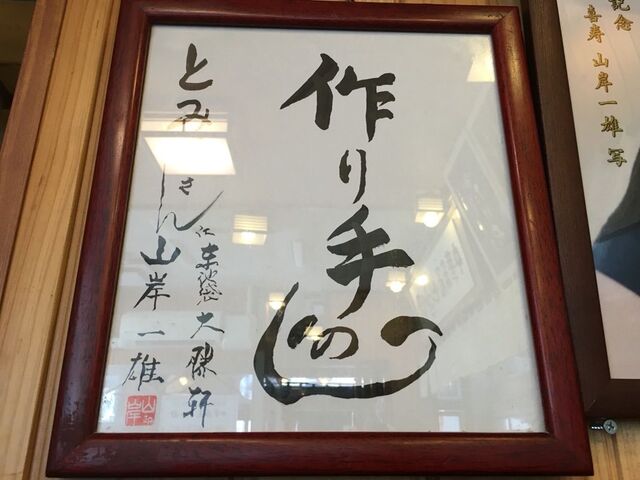 記念
喜寿 山岸一雄 写
作り手の心
とみ
さん江
東池袋大勝軒
山岸一雄